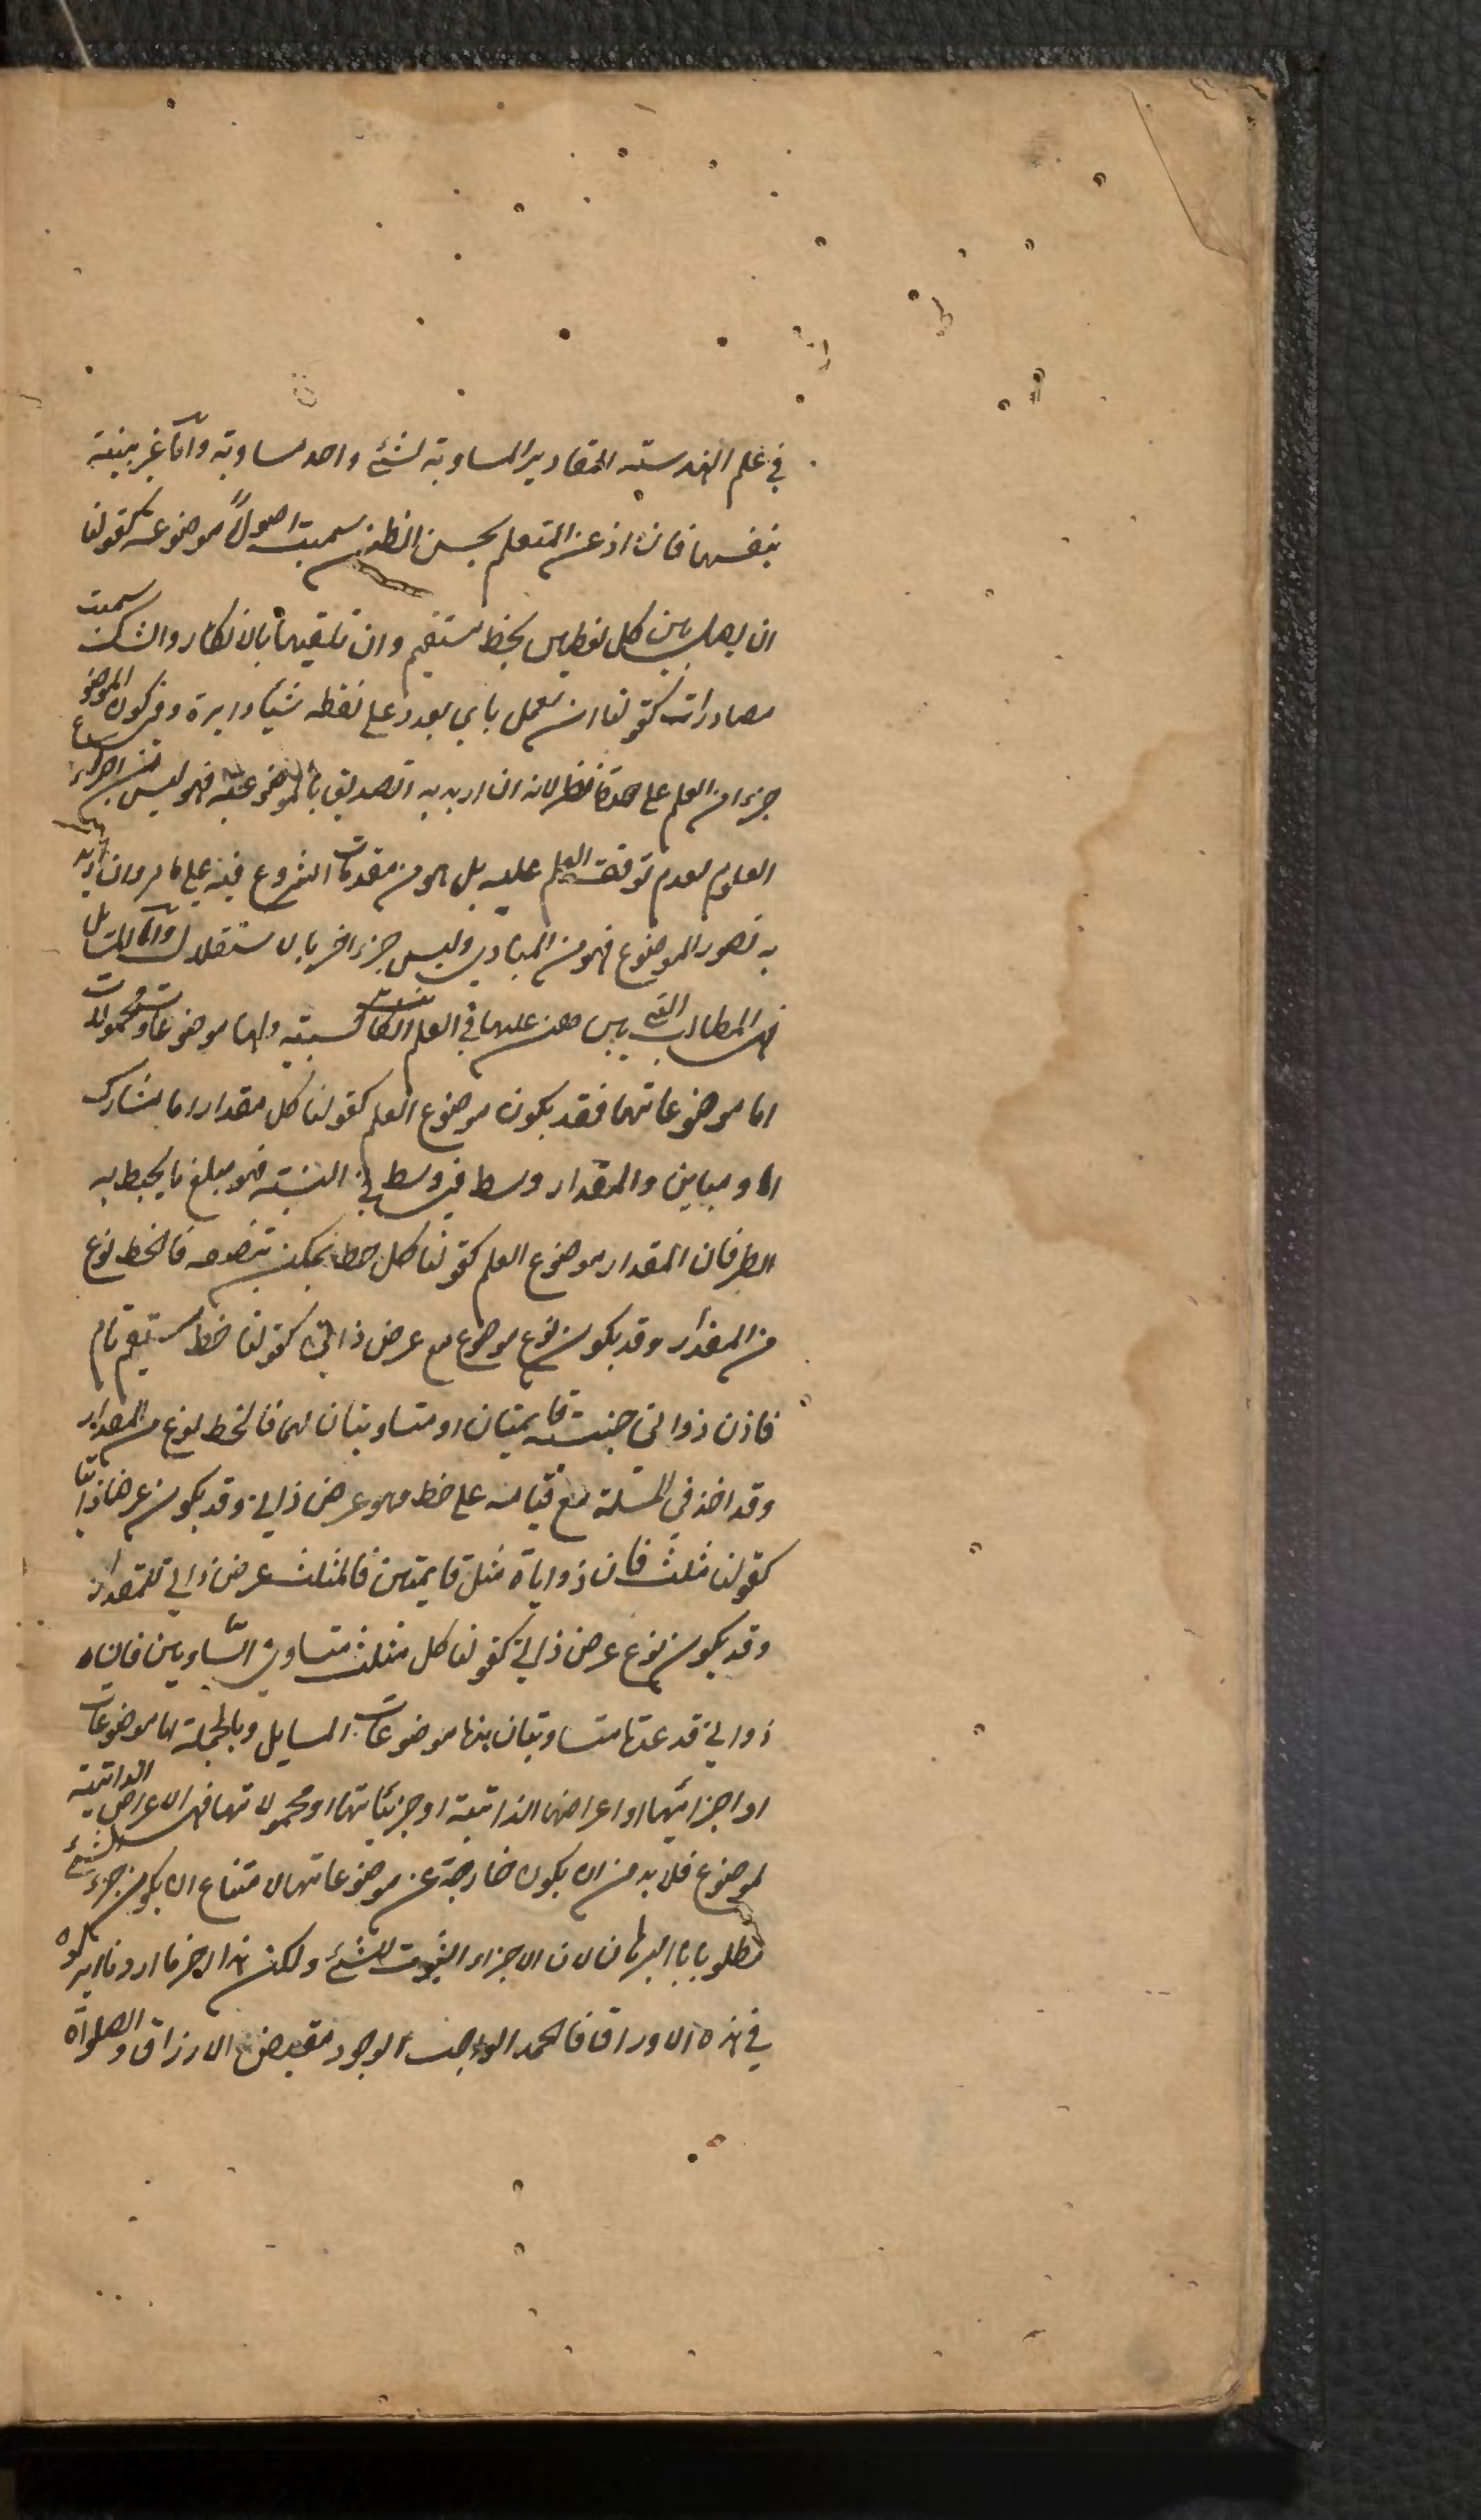 في علم الهندسية المقادير المساوية لشئ واحد مساوية واما غير بينة
بنفسها فان اذعن المتعلم بحسن الظن سميت اصولاً موضوعة كقولنا
ان يصل بين كل نقطتين بخط مستقيم وان تلقيها بالانكار والشك سميت
مصادرات كقولنا ان نعمل باي بعد وعلى نقطه شئنا دايرة وفي كون الموضوع
جزءا من العلم على حدة نظر لانه ان اريد به التصديق بالموضوعية فهو ليس من اجزاء
العلوم لعدم توقف العلم عليه بل هو من مقدمات الشروع فيه على ما مر وان اريد
به تصور الموضوع فهو من المبادي وليس جزء اخر بالاستقلال واما المسائل
فهي المطالب التي يبرهن عليها في العلم ان كانت كسبية ولها موضوعات ومحمولات
اما موضوعاتها فقد يكون موضوع العلم كقولنا كل مقدار اما مشارك
او مباين والمقدار وسط في وسط في النسبة فهو مبلغ ما يحيط به
الطرفان المقدار موضوع العلم كقولنا كل خط يمكن تنصيفه فالخط نوع
من المقدار وقد يكون نوع موضوع مع عرض ذاتي كقولنا خط مستقيم قام
فاذن زوايتي جنبتيه قايمتان او متساويتان لهما فالخط نوع من المقدار
وقد اخذ في المسئلة مع قيامه على خط وهو عرض ذاتي وقد يكون عرضا ذاتيا
كقولنا مثلث فان زواياه مثل قايمتين فالمثلث عرض ذاتي للمقدار
وقد يكون نوع عرض ذاتي كقولنا كل مثلث متساوي الساويين فان
زوايتي قاعدتها متساويتان هذا موضوعات المسايل وبالجملة لها موضوعات
او اجزائها او اعراضها الذاتية او جزئياتها او محمولاتها فهي الاعراض الذاتية
لموضوع فلا بد من ان يكون خارجة عن موضوعاتها لامتناع ان يكون جزء الشئ
مطلوبا بالبرهان لان الاجزاء الثبوت للشئ ولكن هذا اخر ما اردنا ايراده
في هذه الاوراق فالحمد لواجب الوجود مفيض الارزاق والصلواة